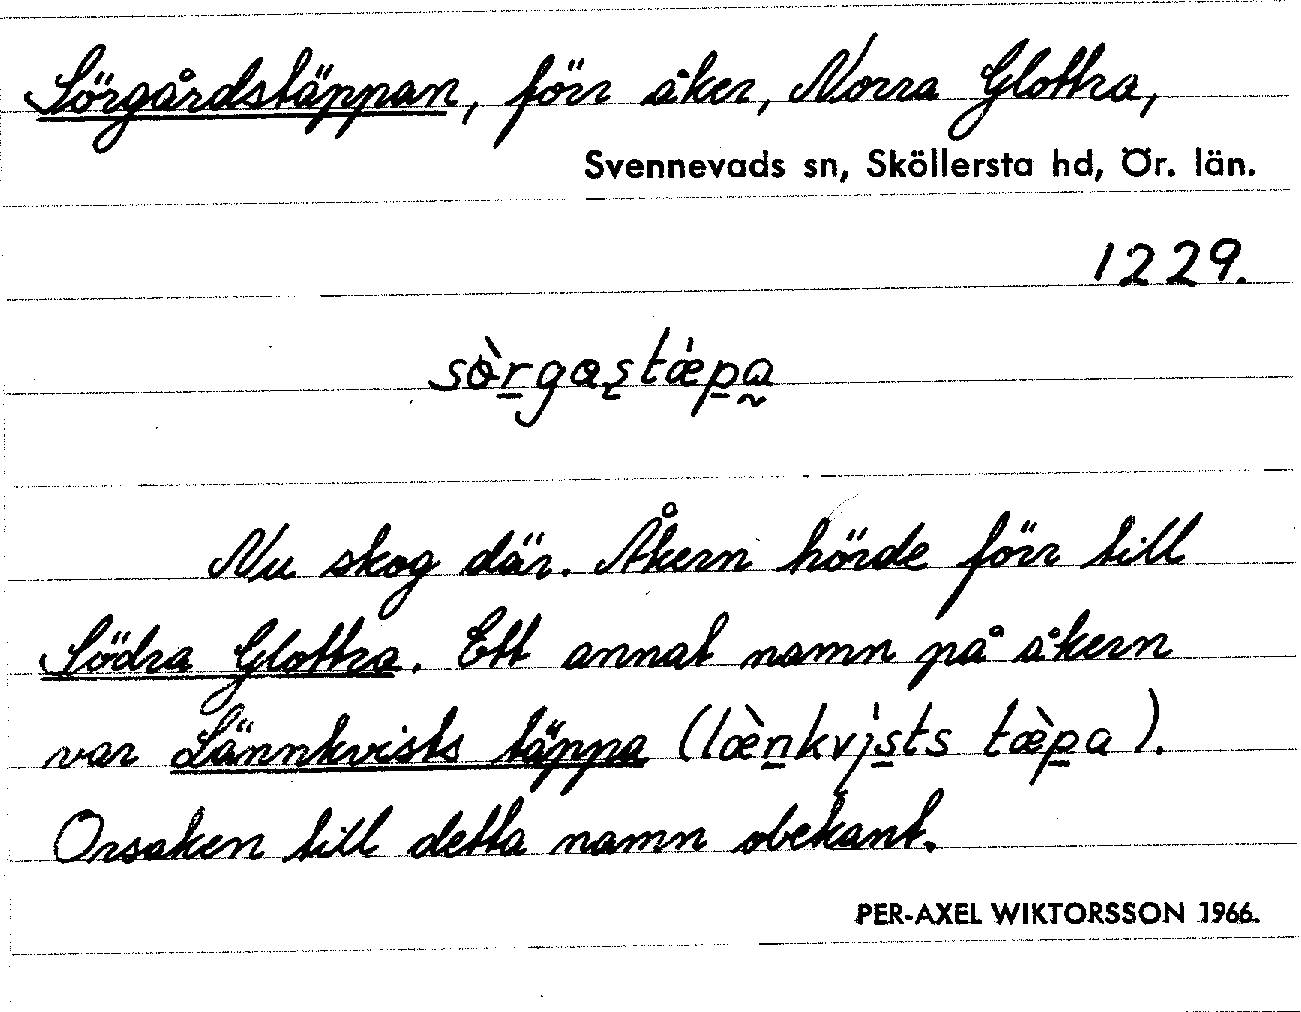 Sörgårdstäppan, förr åker, Norra Glottra,
Svennevads sn, Sköllersta hd, Ör. län.
1229.
sòr̲gaʂtæ̍p̲a̰
Nu skog där. Åkern hörde förr till
Södra Glottra. Ett annat namn på åkern
var Lännkvists täppa (læ̀n̲kvı̍s̲ts tæ̀p̲a).
Orsaken till detta namn obekant.
PER-AXEL WIKTORSSON 1966.